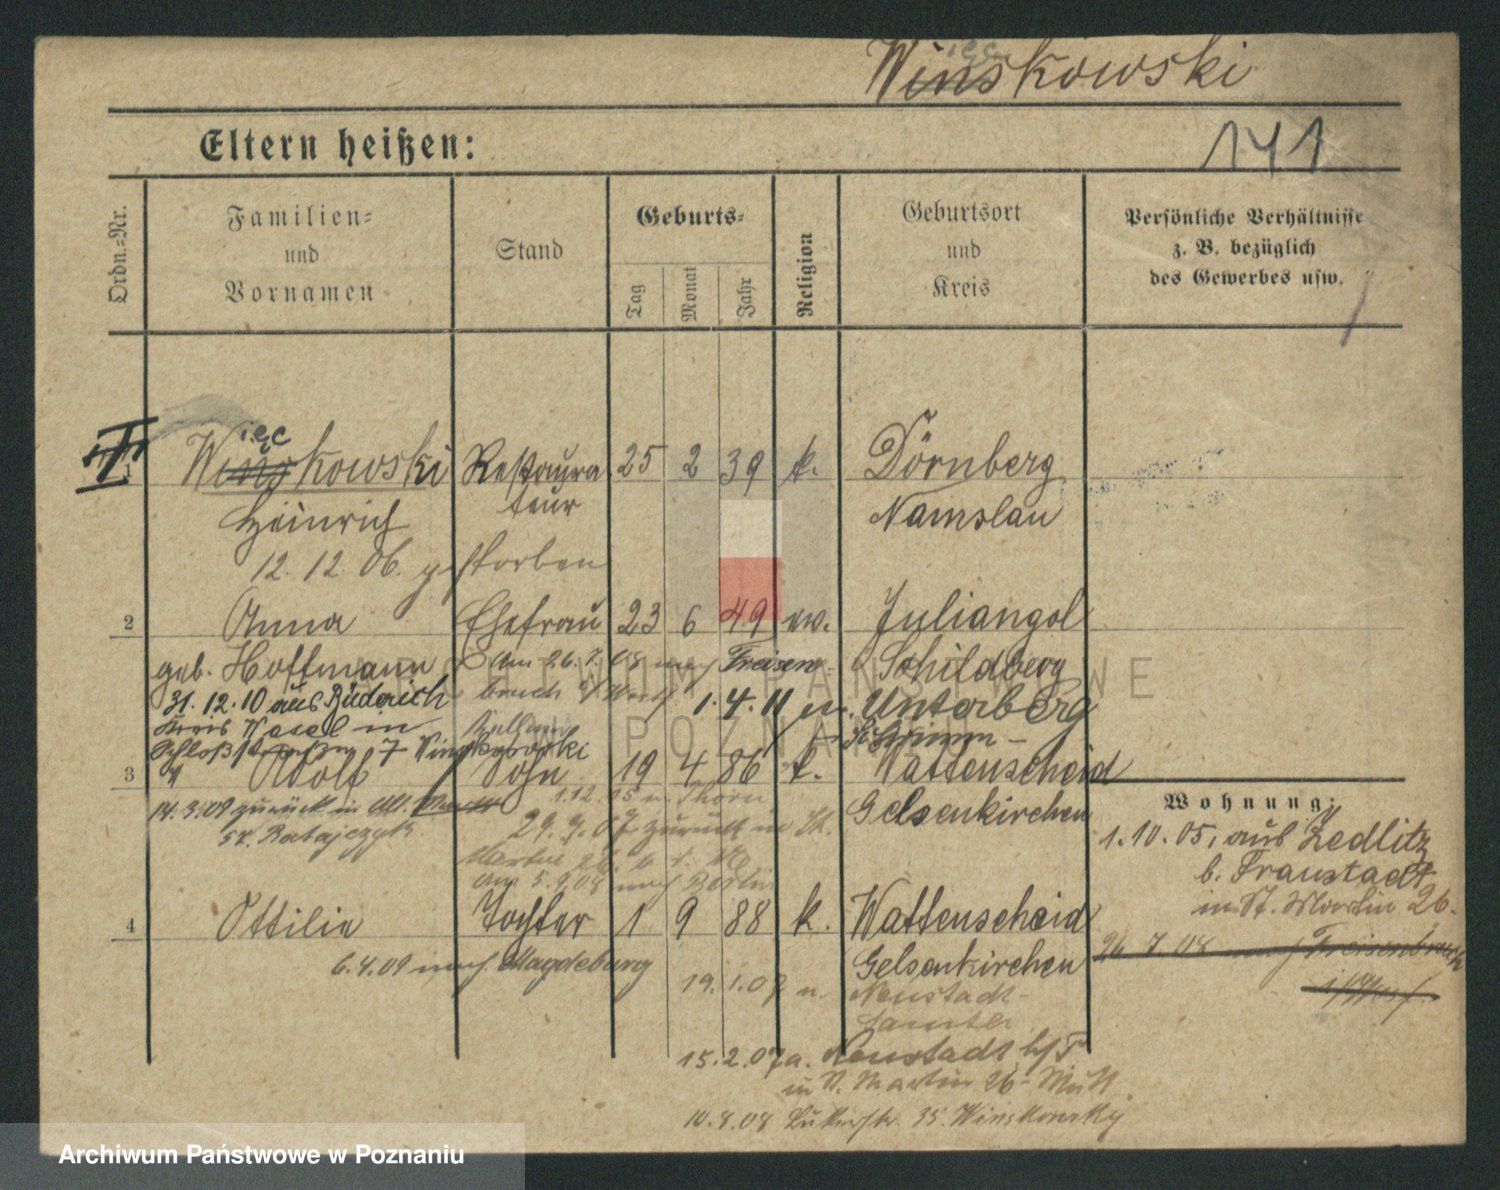 Winskowski
ięc
141
Eltern heißen:
Ordn.-Nr.
Familien-
und
Vornamen
Stand
Geburts-
Tag
Monat
Jahr
Religion
Geburtsort
und
Kreis
Persönliche Verhältnisse
z. B. bezüglich
des Gewerbes usw.
ięc
1 Winskowski Restaura 25 2 39 k. Dörnberg
Heinrich teur Namslau
12. 12. 06. gestorben
2 Anna Ehefrau 23 6 49 ew. Juliangol
geb. Hoffmann Am 26.7.08 nach Freisen- Schildberg
31.12.10 aus Büderich bruch 1.4.11 n. Unterberg
Kreis Wesel in
Schloßstraße 7 Schrimm
3 Adolf Sohn 19 4 86 k. Wattenscheid
14.3.09 zurück in Gelsenkirchen
1.12.05 n. Thorn
b. Ratajczyk 29.9.07 zurück in St.
Martin 26
am 5.9.08 nach Berlin
4 Ottilie Tochter 1 9 88 k. Wattenscheid
6.4.09 nach Magdeburg Gelsenkirchen
19.1.07 n. Neustadt-
15.2.07 a. Neustadt b/P
in St. Martin 26
10.8.08 35 Winskowsky
Wohnung:
1.10.05, aus Zedlitz
b. Fraustadt
in St. Martin 26.
26 7 08 nach Freisenbruch
ARCHIWUM PAŃSTWOWE
W POZNANIU
Archiwum Państwowe w Poznaniu